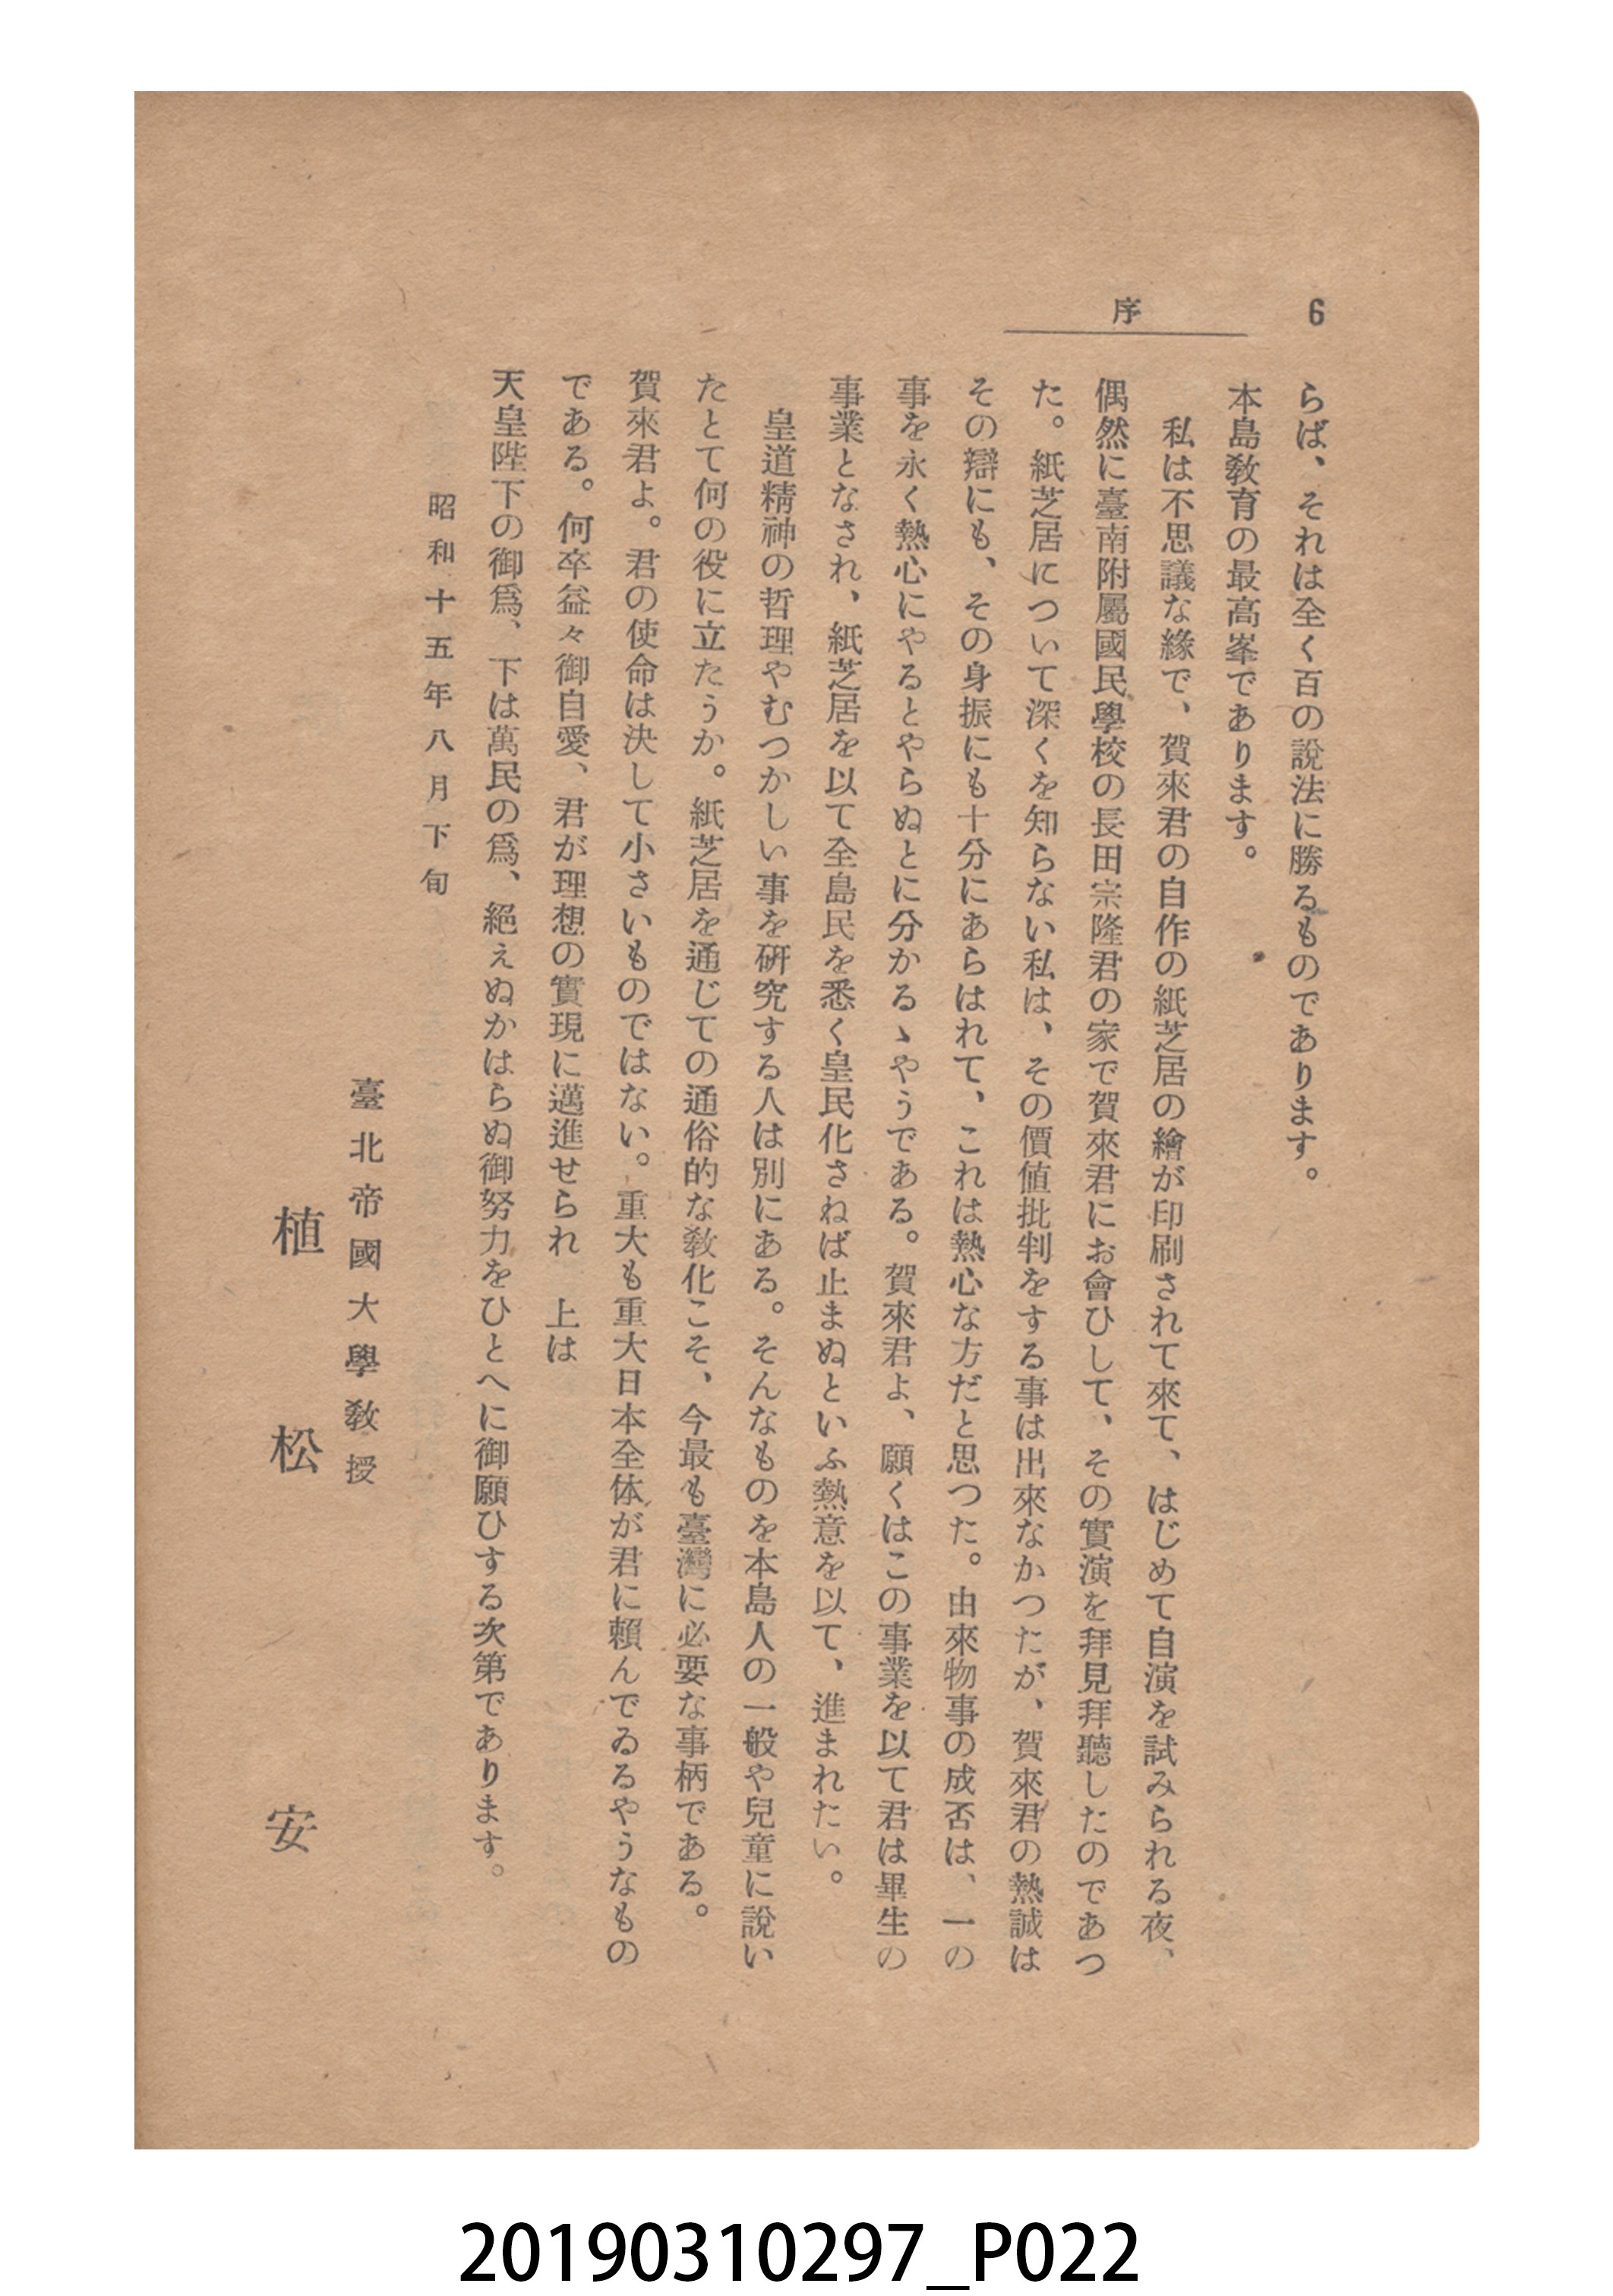 6
序
らば、それは全く百の說法に勝るものであります。
本島敎育の最高峯であります。
私は不思議な緣で、賀來君の自作の紙芝居の繪が印刷されて來て、はじめて自演を試みられる夜、
偶然に臺南附屬國民學校の長田宗隆君の家で賀來君にお會ひして、その實演を拜見拜聽したのであつ
た。紙芝居について深くを知らない私は、その價値批判をする事は出來なかつたが、賀來君の熱誠は
その辯にも、その身振にも十分にあらはれて、これは熱心な方だと思つた。由來物事の成否は、一の
事を永く熱心にやるとやらぬとに分かるゝやうである。賀來君よ、願くはこの事業を以て君は畢生の
事業となされ、紙芝居を以て全島民を悉く皇民化さねば止まぬといふ熱意を以て、進まれたい。
皇道精神の哲理やむつかしい事を硏究する人は別にある。そんなものを本島人の一般や兒童に說い
たとて何の役に立たうか。紙芝居を通じての通俗的な敎化こそ、今最も臺灣に必要な事柄である。
賀來君よ。君の使命は決して小さいものではない。重大も重大日本全体が君に賴んでゐるやうなもの
である。何卒益々御自愛、君が理想の實現に邁進せられ　上は
天皇陛下の御爲、下は萬民の爲、絕えぬかはらぬ御努力をひとへに御願ひする次第であります。
昭和十五年八月下旬
臺北帝國大學敎授
植松安
20190310297_P022